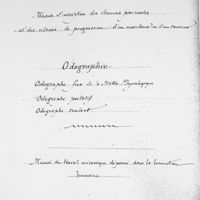 Mesure et inscription des chemins parcourus
et des vitesses de progression d'un marcheur ou d'un coureur
Odographie
Odographe fixe de la Station Physiologique
Odographe portatif
Odographe roulant
Mesure du travail mécanique dépensé dans la locomotion
humaine